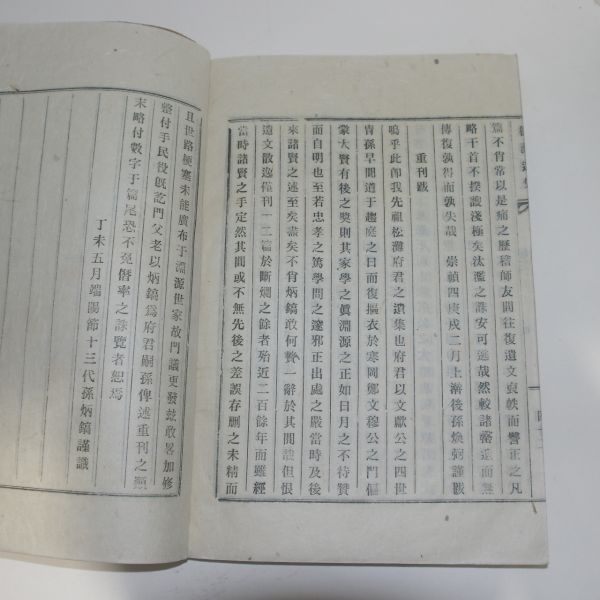 篇不肖常以是痛之歷稽師友間往復遺文裒帙而讐正之凡
略千首不揆謏淺極矣汰濫之誅安可逃哉然較諸磬逗而無
傳復孰得而孰失哉 崇禎四庚戌二月上澣後孫煥弼謹跋
重刊跋
嗚乎此卽我先祖松灘府君之遺集也府君以文獻公之四世
胄孫早聞道于趨庭之日而復摳衣於寒岡鄭文穆公之門傴
蒙大賢有後之奬則其家學之眞淵源之正如日月之不待贊
而自明也至若忠孝之篤學問之邃邪正出處之嚴當時及後
來諸賢之述至矣盡矣不肖炳鎬敢何贅一辭於其間哉但恨
遺文散逸僅刊一二篇於斷爛之餘者殆近二百餘年而雖經
當時諸賢之手定然其間或不無先後之差誤存刪之未精而
且世路梗塞未能廣布于淵源世家故門議更發玆敢畧加修
整付手民役旣訖門父老以炳鎬爲府君嗣孫俾述重刊之顚
末略付數字于篇尾恐不免僭率之誅覽者恕焉
丁未五月端陽節十三代孫炳鎬謹識